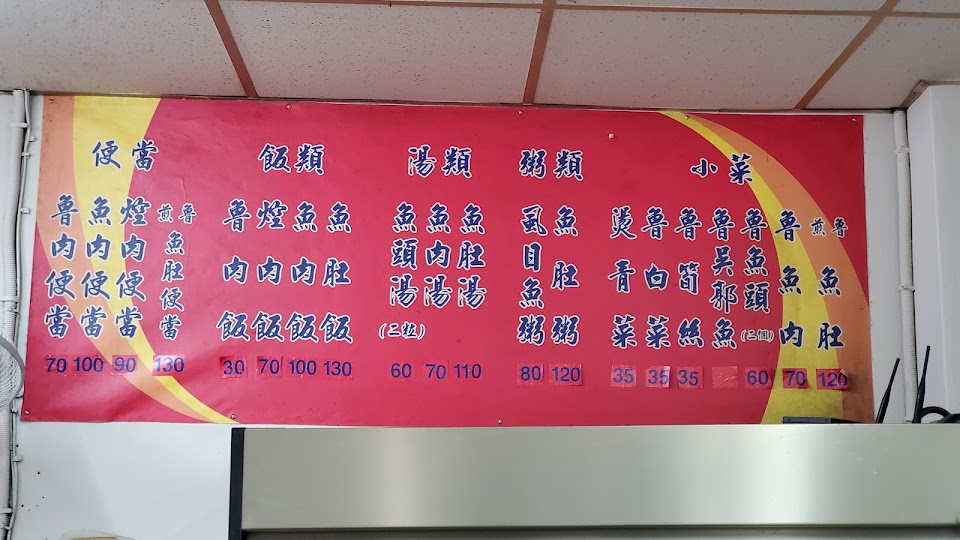 便當
魯肉便當
70
魚肉便當
100
焢肉便當
90
煎魯魚肚便當
130
飯類
魯肉飯
30
焢肉飯
70
魚肉飯
100
魚肚飯
130
湯類
魚頭湯(二粒)
60
魚肉湯
70
魚肚湯
110
粥類
虱目魚粥
80
魚肚粥
120
小菜
燙青菜
35
魯白菜
35
魯筍絲
35
魯吳郭魚
魯魚頭(二個)
60
魯魚肉
70
煎魯魚肚
120